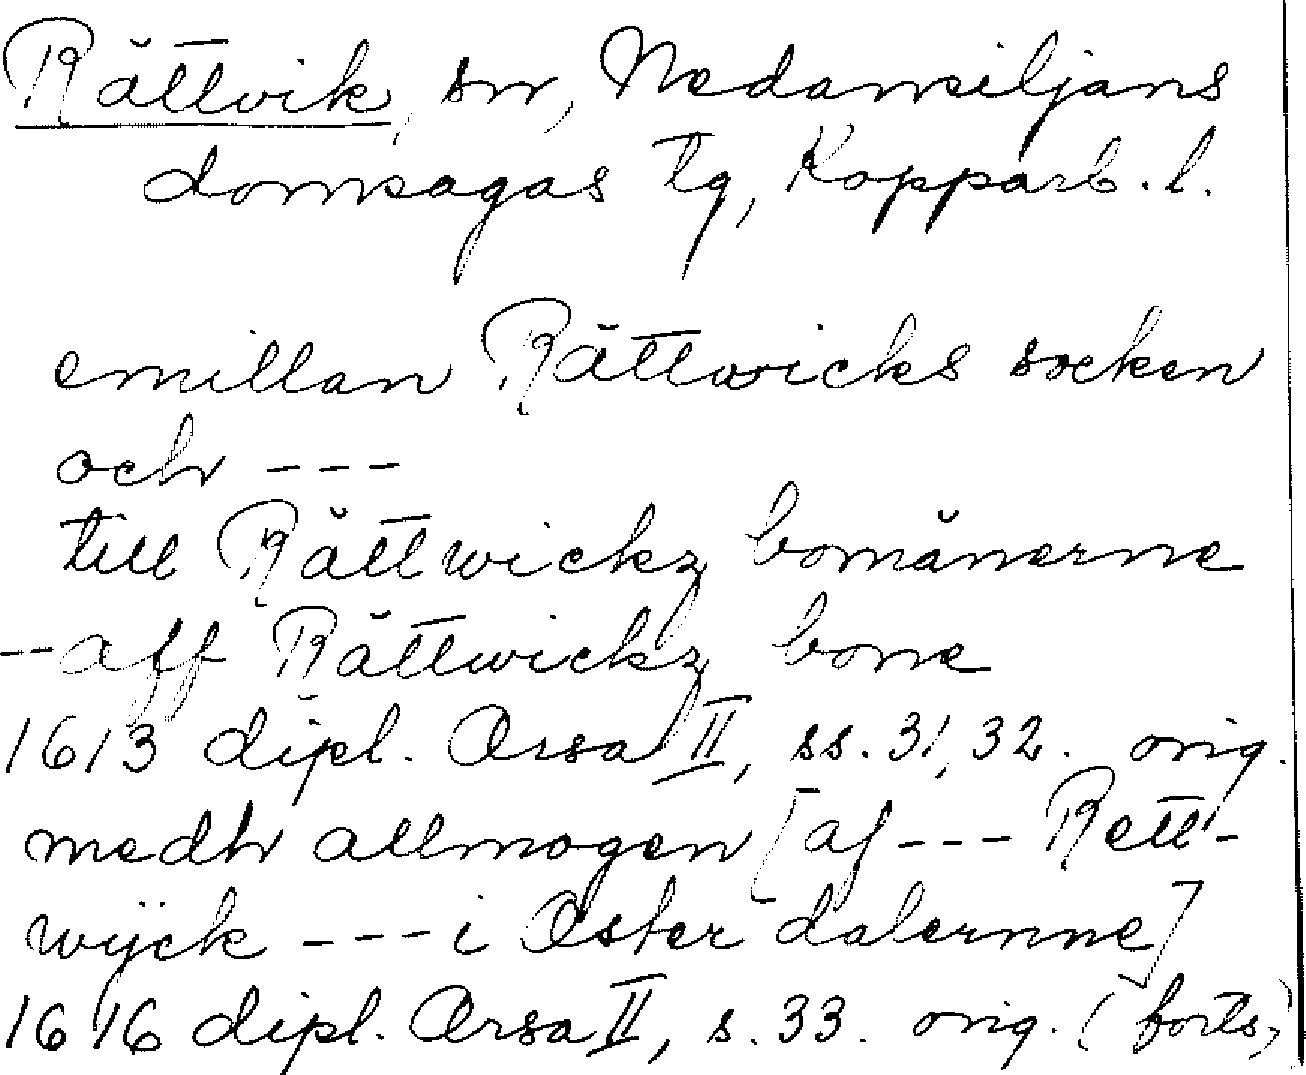 Rättvik, sn, Nedansiljans
domsagas tg, Kopparb. l.
emillan Rättwicks socken
och ---
till Rättwickz bomänerne
--aff Rättwickz bone
1613 dipl. Orsa II, ss. 31, 32. orig.
medh allmogen [af --- Rett-
wÿck --- i Öster dalernne]
1616 dipl. Orsa II, s. 33. orig. (forts.)